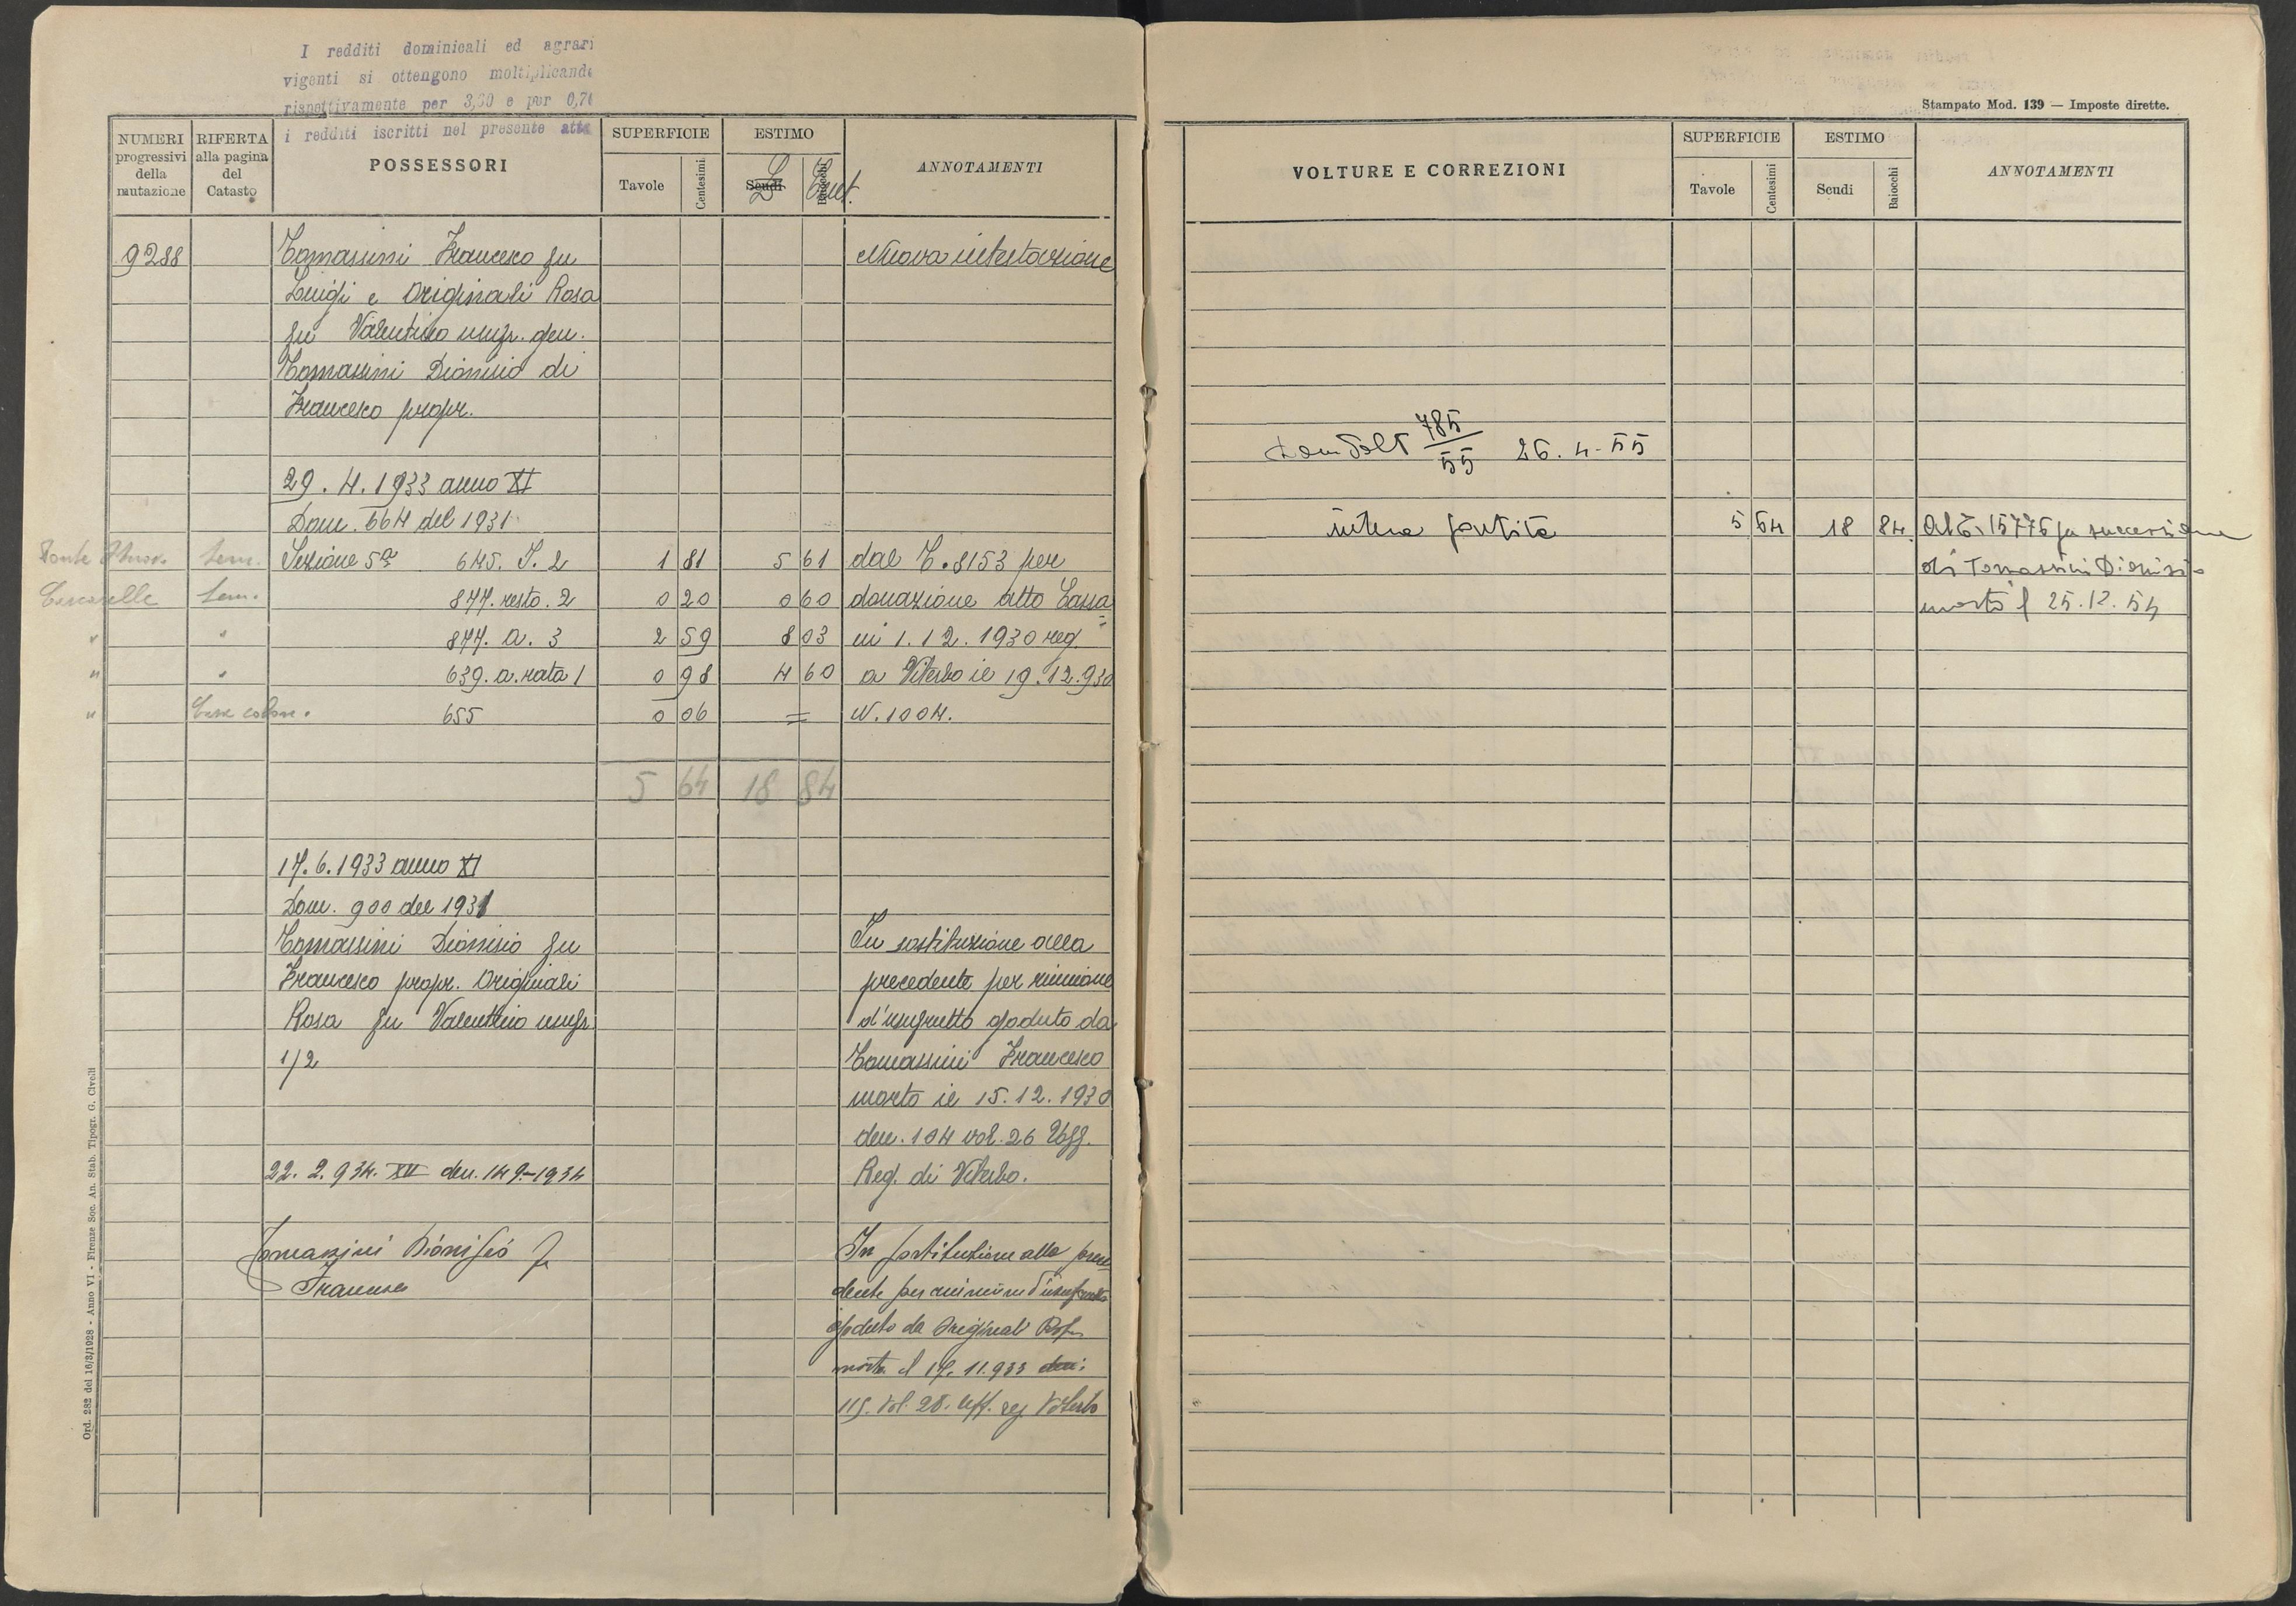 I redditi dominicali ed agrari
vigenti si ottengono moltiplicando
rispettivamente per 3,60 e per 0,70
i redditi iscritti nel presente atto
NUMERI progressivi della mutazione
RIFERTA alla pagina del Catasto
POSSESSORI
SUPERFICIE
Tavole Centesimi
ESTIMO
Scudi Baiocchi
L Cent.
ANNOTAMENTI
9288 Tomassini Francesco fu Nuova intestazione
Luigi e Originali Rosa
fu Valentino usufr. gen.
Tomassini Dionisio di
Francesco propr.
29.4.1933 anno XI
Dom. 664 del 1931
Sem. Sezione 5ª 645. S. 2 1 81 5 61 dal T. 8153 per
Sem. 877. resto. 2 0 20 0 60 donazione atto Cassa
" " 877. a. 3 2 59 8 03 ni 1.12.1930 reg.
" " 639. a. rata 1 0 98 4 60 a Viterbo il 19.12.930
" 655 0 06 = N. 1004.
5 64 18 84
17.6.1933 anno XI
Dom. 900 del 1931
Tomassini Dionisio fu In sostituzione alla
Francesco propr. Originali precedente per riunione
Rosa fu Valentino usufr. d'usufrutto goduto da
1/2 Tomassini Francesco
morto il 15.12.1930
den. 104 vol. 26 Uff.
22.2.934. XII den. 149-1934 Reg. di Viterbo.
Tomassini Dionisio f In sostituzione alla prece
Francesco dente per riunione d'usufrutto
goduto da Originali Rosa
morta il 17.11.933 den:
119. Vol. 28. Uff. reg. Viterbo
Ord. 282 del 16/3/1928 - Anno VI - Firenze Soc. An. Stab. Tipogr. G. Civelli
Stampato Mod. 139 — Imposte dirette.
VOLTURE E CORREZIONI
SUPERFICIE
Tavole Centesimi
ESTIMO
Scudi Baiocchi
ANNOTAMENTI
Dom Volt 785/55 26.4-55
intera partita 5 64 18 84 Al T. 15776 per successione
di Tomassini Dionisio
morto il 25.12.54